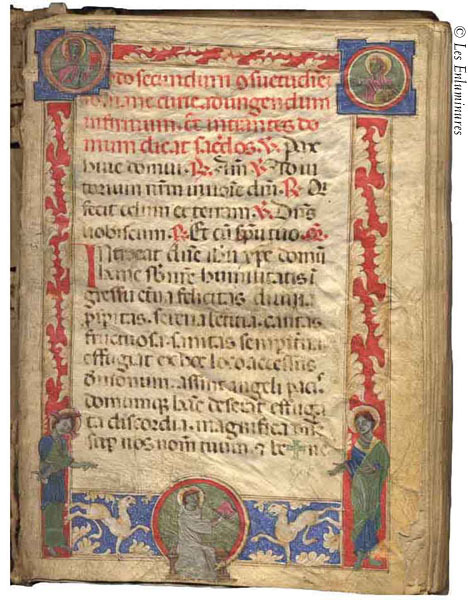 rdo secundum ꝯsuetudinē
romane curie ad ungendum
infirmum. Et intrantes do
mum dicat sac̄dos. ℣. pax
huic domui. ℟. Am̄. ℣. Adiu
torium nr̄m in noīe dn̄i. ℟. Qī
fecit celum et terram. ℣. Dn̄s
uobiscum. ℟. Et cū sp̄u tuo. Or̄
Introeat dn̄e ih̄u xp̄e domū
hanc sb̄ nr̄e humilitatis ī
gressu et̄na felicitas. diuina
ꝓspitas. serena letitia. caritas
fructuosa. sanitas sempit̄na
effugiat ex hoc loco accessus
demonum. assint angeli pacis
domumque hanc deserat effuga
ta discordia. magnifica dn̄e
sup̄ nos nom̄ tuum. ⁊ be✠ne
© Les Enluminures